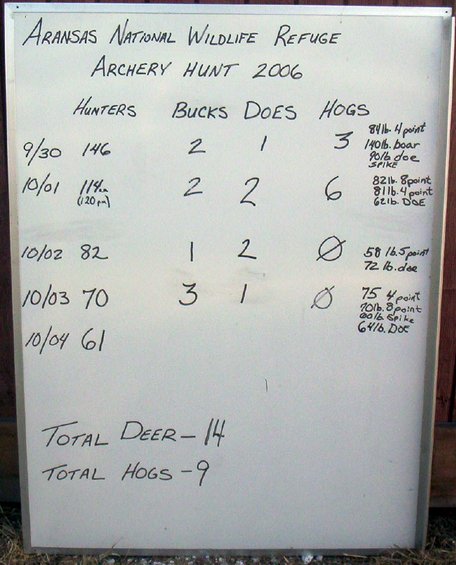 ARANSAS NATIONAL WILDLIFE REFUGE
ARCHERY HUNT 2006
HUNTERS BUCKS DOES HOGS
9/30 146 2 1 3 84lb. 4 point
140lb. boar
90lb. doe
SPIKE
10/01 114am 2 2 6 82lb. 8point
(120pm) 81lb. 4point
62lb. DOE
10/02 82 1 2 Ø 58 lb. 5 point
72 lb. doe
10/03 70 3 1 Ø 75 4 point
70lb. 8 point
lb. Spike
64lb. DOE
10/04 61
TOTAL DEER – 14
TOTAL HOGS – 9